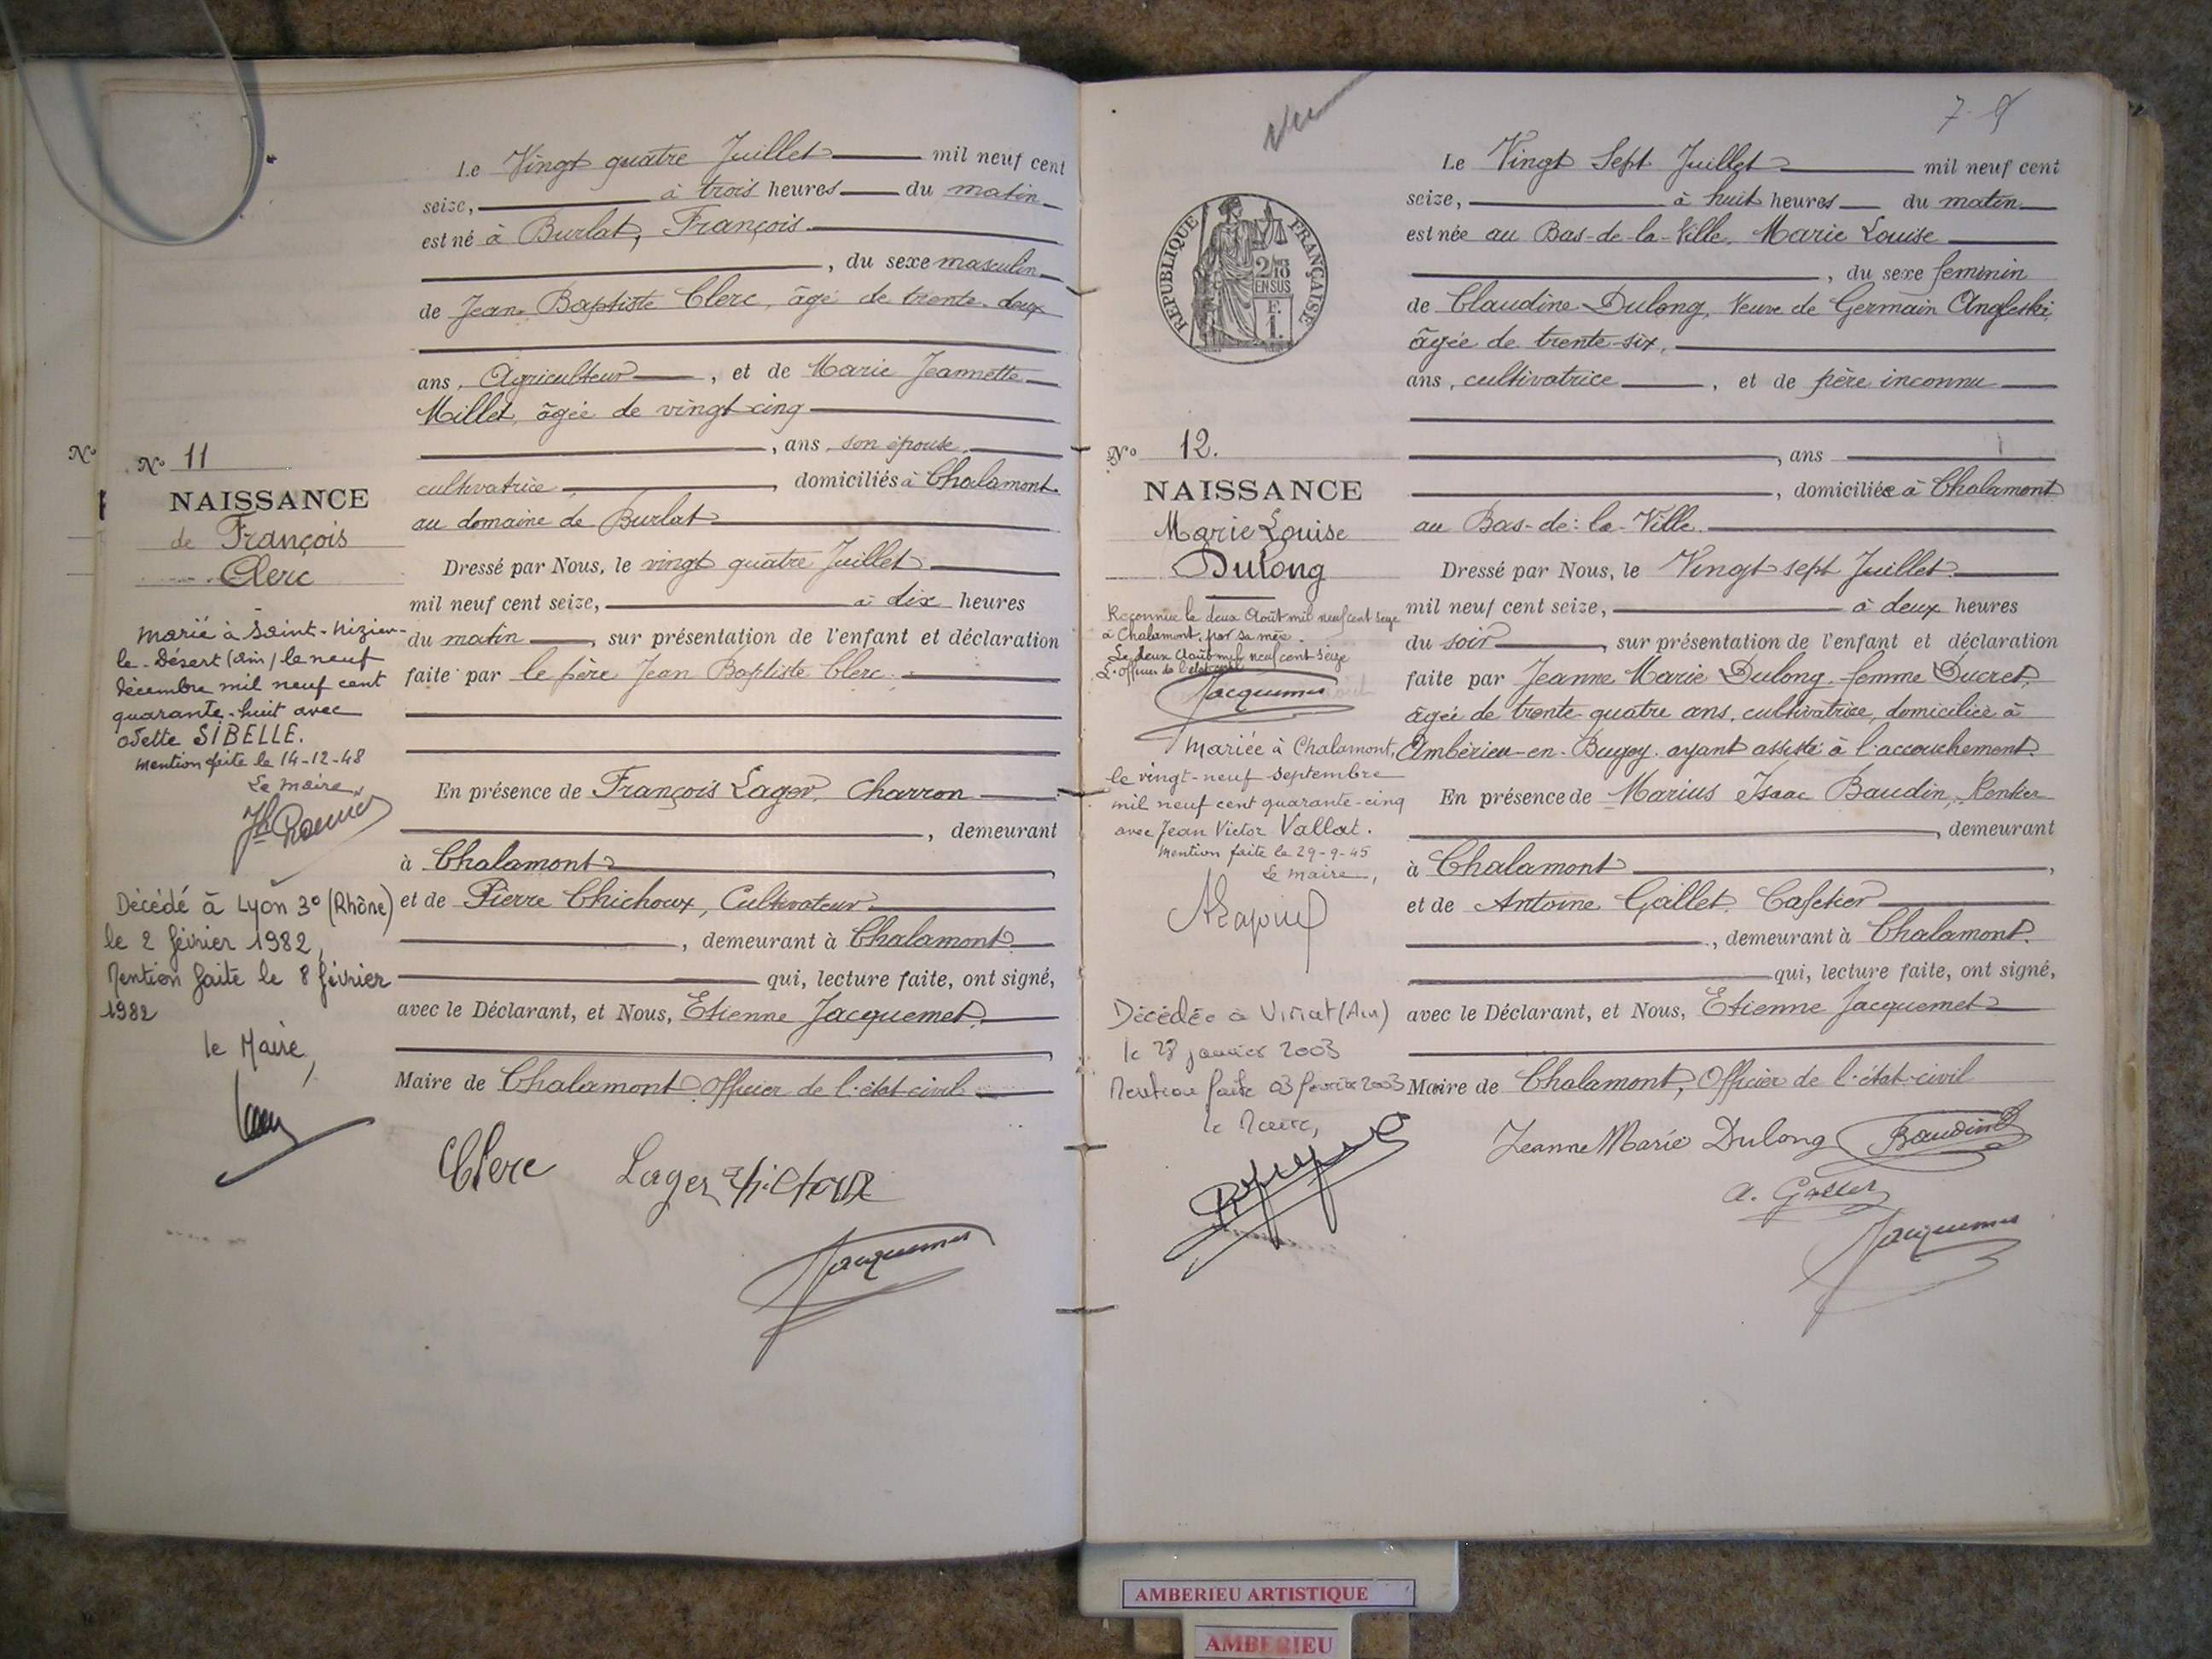 Le Vingt quatre Juillet mil neuf cent
seize, à trois heures du matin
est né à Burlat, François
, du sexe masculin
de Jean Baptiste Clerc, âgé de trente-deux
ans, Agriculteur, et de Marie Jeannette
Millet, âgée de vingt-cinq
, ans, son épouse,
cultivatrice, domiciliés à Chalamont
au domaine de Burlat
Dressé par Nous, le vingt quatre Juillet
mil neuf cent seize, à dix heures
du matin, sur présentation de l'enfant et déclaration
faite par le père Jean Baptiste Clerc.
En présence de François Lager, Charron
, demeurant
à Chalamont,
et de Pierre Chichoux, Cultivateur
, demeurant à Chalamont
qui, lecture faite, ont signé,
avec le Déclarant, et Nous, Etienne Jacquemet
Maire de Chalamont, Officier de l'état-civil
Clerc Lager Chichoux
Jacquemet
No
No 11
NAISSANCE
de François
Clerc
marié à Saint-Nizier-
le-Désert (Ain) le neuf
décembre mil neuf cent
quarante-huit avec
Odette SIBELLE.
Mention faite le 14-12-48
Le maire,
Décédé à Lyon 3e (Rhône)
le 2 février 1982,
Mention faite le 8 février
1982
le Maire,
Vu
7-
RÉPUBLIQUE FRANÇAISE
2/10
EN SUS
F.
1.
Le Vingt Sept Juillet mil neuf cent
seize, à huit heures du matin
est née au Bas-de-la-Ville, Marie Louise
, du sexe feminin
de Claudine Dulong, Veuve de Germain Angleski,
âgée de trente-six,
ans, cultivatrice, et de père inconnu
, ans
, domiciliée à Chalamont
au Bas-de-la-Ville.
Dressé par Nous, le Vingt sept Juillet
mil neuf cent seize, à deux heures
du soir, sur présentation de l'enfant et déclaration
faite par Jeanne Marie Dulong femme Ducret,
âgée de trente-quatre ans, cultivatrice, domiciliée à
Ambérieu-en-Bugey ayant assisté à l'accouchement.
En présence de Marius Isaac Baudin, Rentier
, demeurant
à Chalamont,
et de Antoine Gallet, Cafetier
, demeurant à Chalamont.
qui, lecture faite, ont signé,
avec le Déclarant, et Nous, Etienne Jacquemet
Maire de Chalamont, Officier de l'état-civil
Jeanne Marie Dulong Baudin
A. Gallet
Jacquemet
No 12.
NAISSANCE
Marie Louise
Dulong
Reconnue le deux Août mil neuf cent seize
à Chalamont, par sa mère.
Le deux Août mil neuf cent seize
L'officier de l'état civil
Jacquemet
Mariée à Chalamont,
le vingt-neuf septembre
mil neuf cent quarante-cinq
avec Jean Victor Vallat.
Mention faite le 29-9-45
Le maire,
Décédée à Viriat (Ain)
le 28 janvier 2003
Mention faite 03 février 2003
le Maire,
AMBERIEU ARTISTIQUE
AMBERIEU